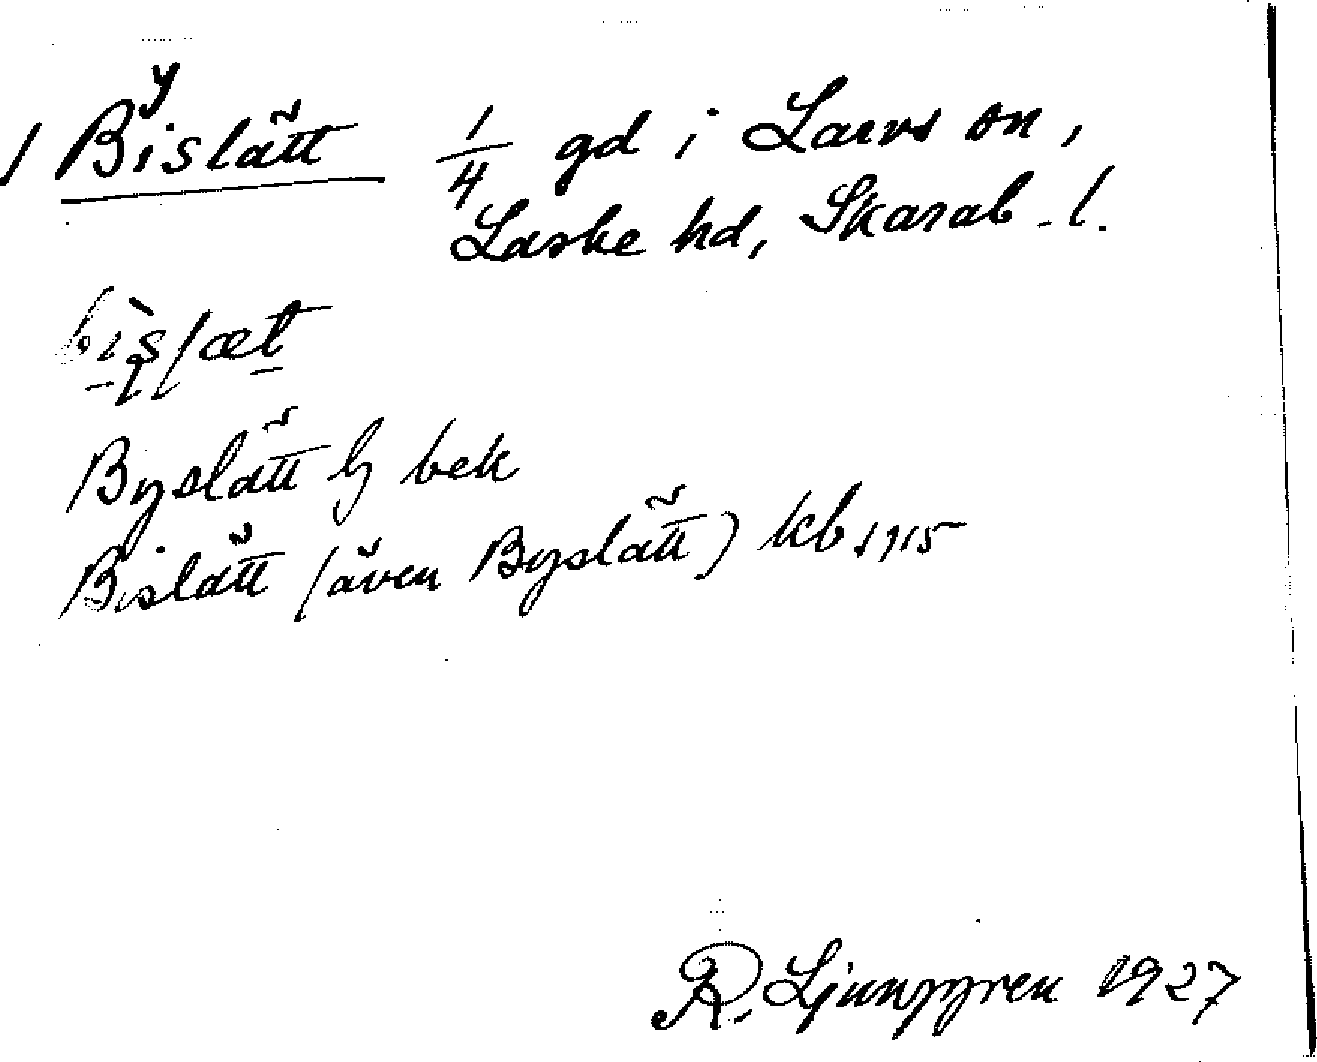 y
1 Bislätt 1/4 gd i Larvs sn,
Laske hd, Skarab. l.
Byslätt bek
Bislätt (även Byslätt) kb 1915
R. Ljunggren 1927